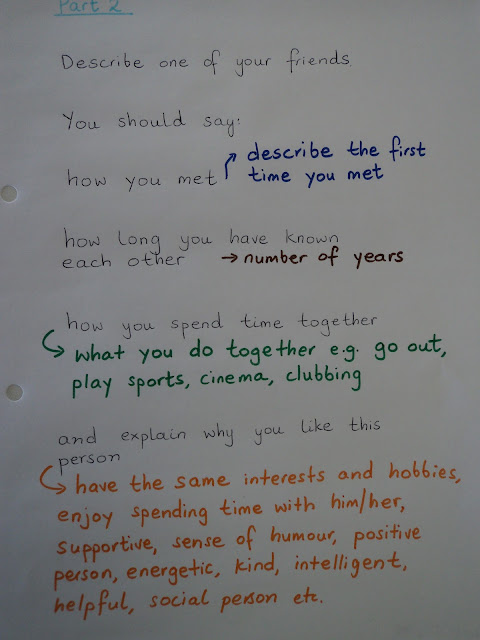 Part 2
Describe one of your friends
You should say:
how you met
describe the first
time you met
how long you have known
each other → number of years
how you spend time together
what you do together e.g. go out,
play sports, cinema, clubbing
and explain why you like this
person
have the same interests and hobbies,
enjoy spending time with him/her,
supportive, sense of humour, positive
person, energetic, kind, intelligent,
helpful, social person etc.